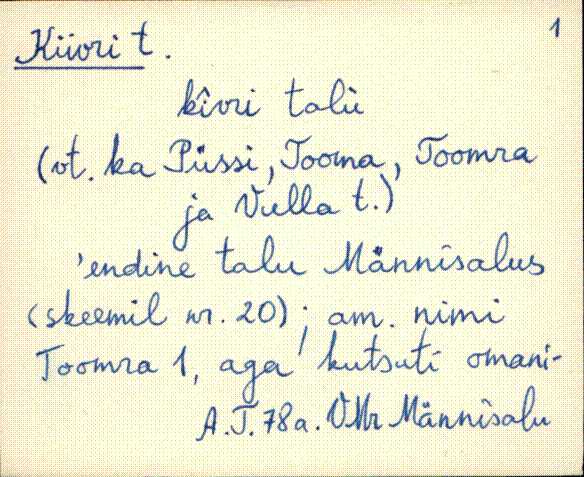 Küvri t.
1
kîvri talù
(vt. ka Püssi, Tooma, Toomra
ja Vulla t.)
'endine talu Männisalus
(skeemil nr. 20); am. nimi
Toomra 1, aga kutsuti omani-
A.T. 78a. VMr Männisalu